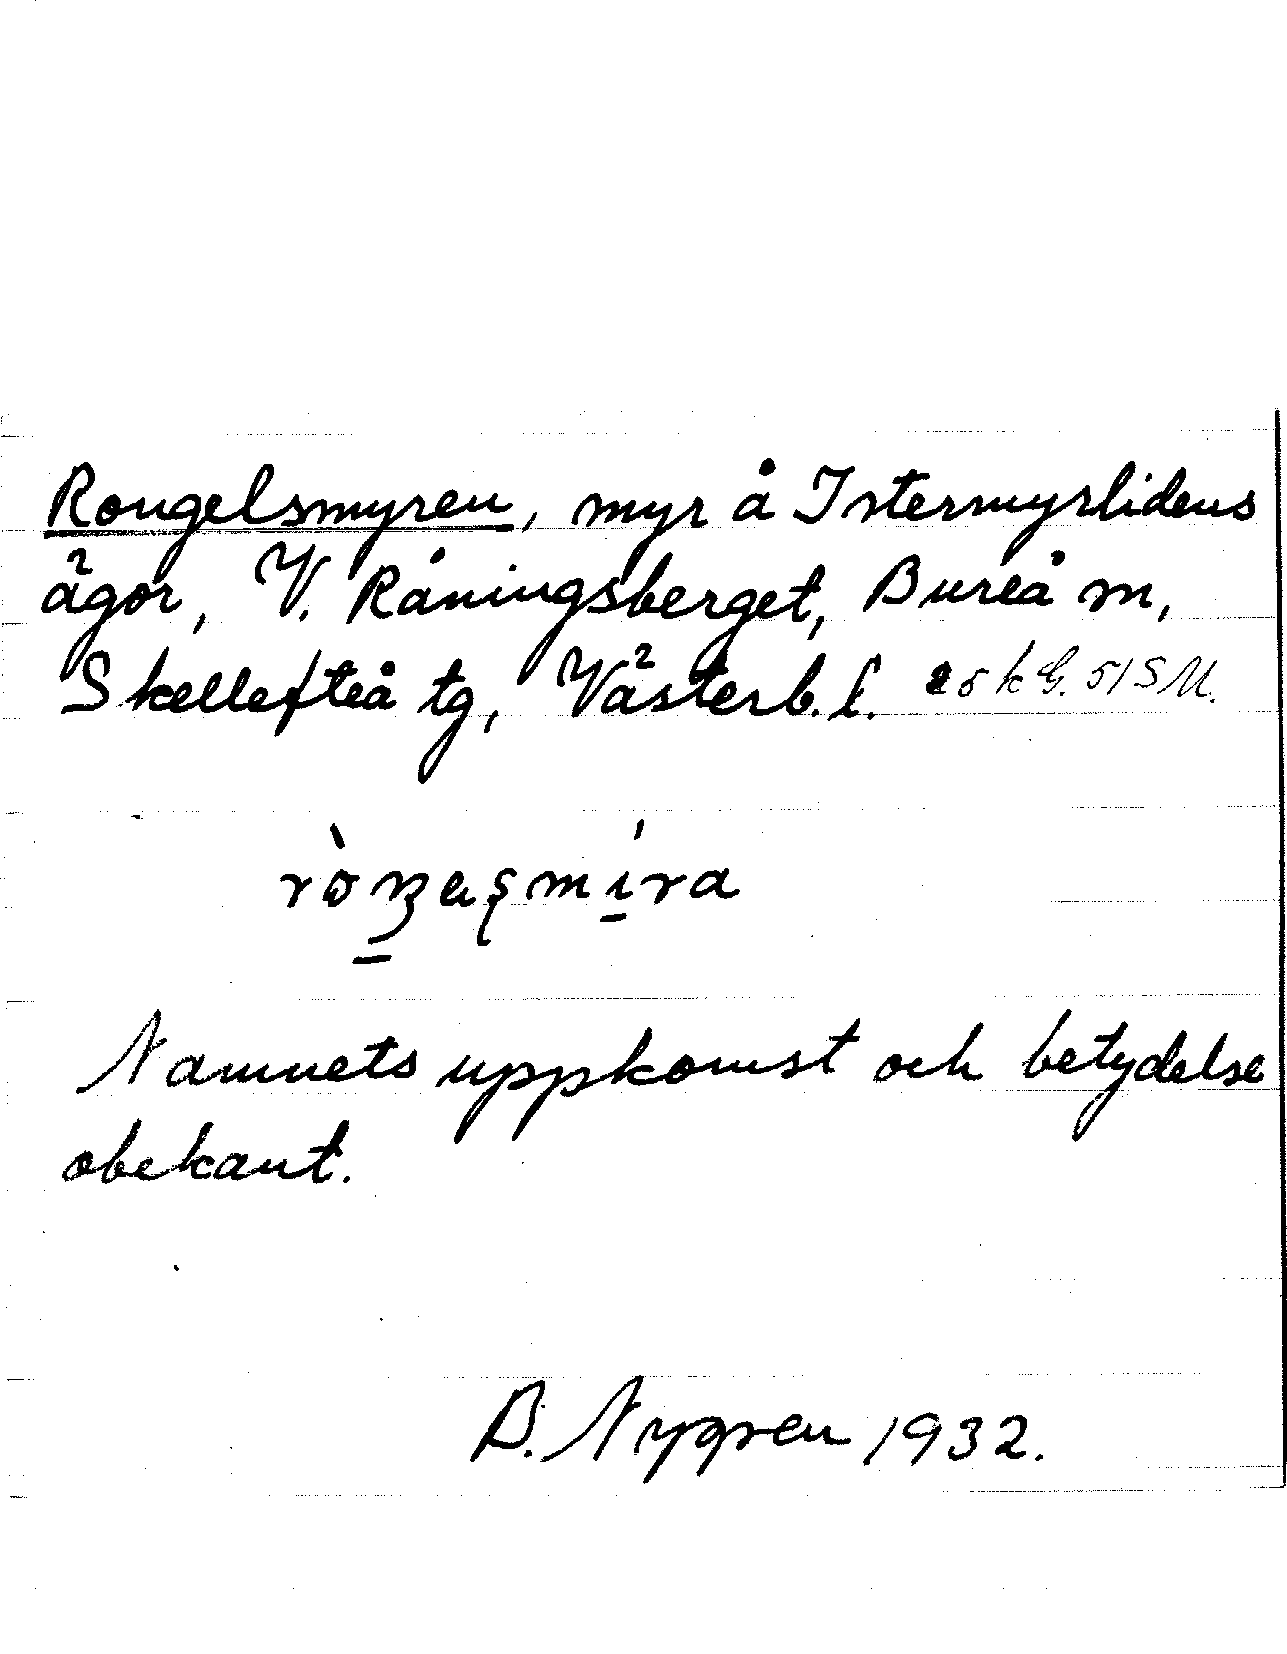 Rongelsmyren, myr å Istermyrlidens
ägor, V. Råningsberget, Bureå m,
Skellefteå tg, Västerb. l.
Namnets uppkomst och betydelse
obekant.
B. Nygren 1932.